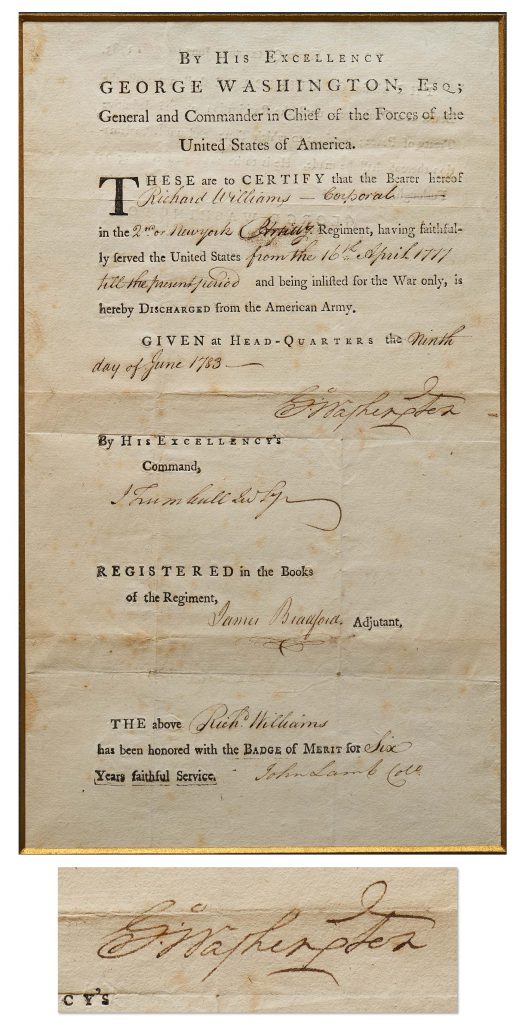 By His Excellency
GEORGE WASHINGTON, Esq;
General and Commander in Chief of the Forces of the
United States of America.
THESE are to CERTIFY that the Bearer hereof
Richard Williams – Corporal
in the 2nd or Newyork Regiment, having faithful-
ly served the United States from the 16th April 1777
till the present period and being inlisted for the War only, is
hereby Discharged from the American Army.
GIVEN at Head-Quarters the Ninth
day of June 1783 —
Go Washington
By His Excellency's
Command,
J Trumbull Jun Sy
REGISTERED in the Books
of the Regiment,
James Bradford. Adjutant,
THE above Richd Williams
has been honored with the Badge of Merit for Six
Years faithful Service. John Lamb Colo
Go Washington
CY'S